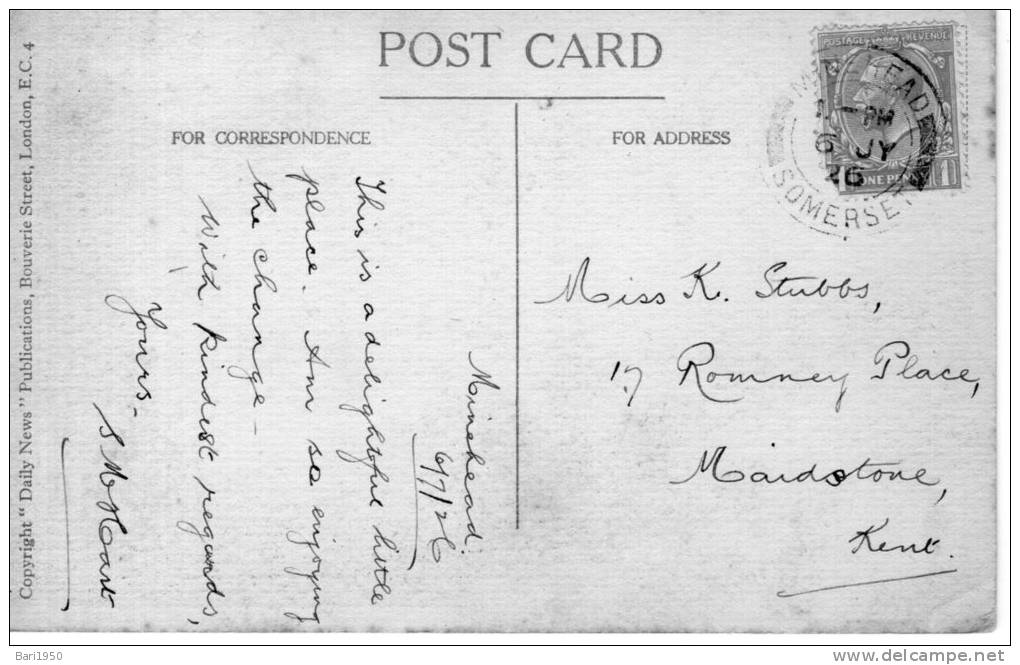 POST CARD
FOR CORRESPONDENCE
FOR ADDRESS
Minehead.
6/7/26
This is a delightful little
place. Am so enjoying
the change –
With kindest regards,
Yours –
S M Hart
Miss K. Stubbs,
17 Romney Place,
Maidstone,
Kent.
POSTAGE REVENUE
ONE PENNY
1
PM
6 JY
26
SOMERSET
Copyright "Daily News" Publications, Bouverie Street, London, E.C. 4
Bari1950
www.delcampe.net